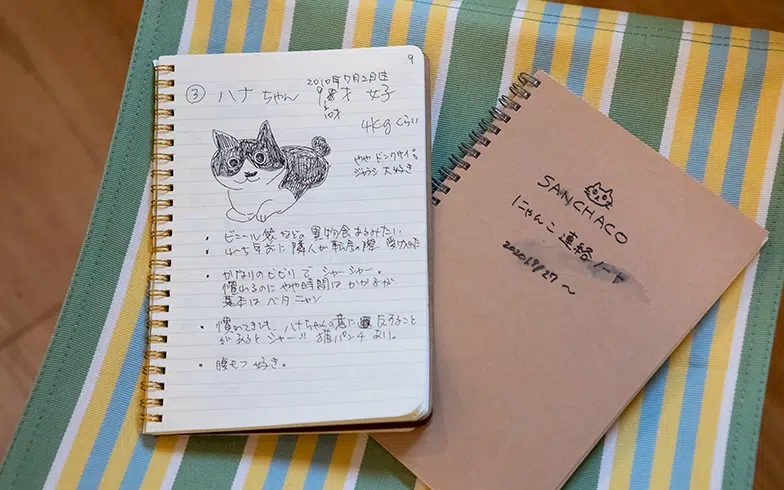 9
③ ハナちゃん
2010年7月2日生
9, 8才 女子
4kgくらい
やや ドンクサイ。
ジャラシ 大好き
・ビニール袋などの異物食あるみたい
・4〜5年前に隣人が転居の際 受け
・かなりのビビリで シャーシャー。
慣れるのに やや時間は かかるが、
基本は ベタニャン
・慣れてきても、ハナちゃんの意に 反すること
があると シャー!! 猫パンチ あり。
・腹モフ 好き。
SANCHACO
にゃんこ連絡ノート
2020.9/27〜